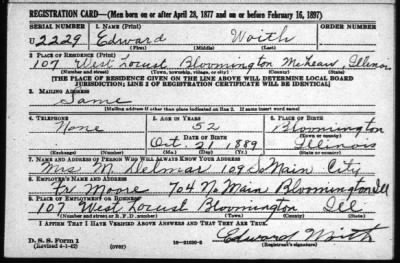 REGISTRATION CARD—(Men born on or after April 28, 1877 and on or before February 16, 1897)
SERIAL NUMBER 1. NAME (Print) ORDER NUMBER
U 2229 Edward Woith
(First) (Middle) (Last)
2. PLACE OF RESIDENCE (Print)
107 West Locust Bloomington McLean, Illinois
(Number and street) (Town, township, village, or city) (County) (State)
[THE PLACE OF RESIDENCE GIVEN ON THE LINE ABOVE WILL DETERMINE LOCAL BOARD
JURISDICTION; LINE 2 OF REGISTRATION CERTIFICATE WILL BE IDENTICAL]
3. MAILING ADDRESS
Same
[Mailing address if other than place indicated on line 2. If same insert word same]
4. TELEPHONE 5. AGE IN YEARS 6. PLACE OF BIRTH
None 52 Bloomington
DATE OF BIRTH (Town or county)
Oct. 21 1889 Illinois
(Exchange) (Number) (Mo.) (Day) (Yr.) (State or country)
7. NAME AND ADDRESS OF PERSON WHO WILL ALWAYS KNOW YOUR ADDRESS
Mrs M Delmar 109 So Main City
8. EMPLOYER'S NAME AND ADDRESS
Fr Moore 704 No Main Bloomington Ill
9. PLACE OF EMPLOYMENT OR BUSINESS
107 West Locust Bloomington Ill
(Number and street or R. F. D. number) (Town) (County) (State)
I AFFIRM THAT I HAVE VERIFIED ABOVE ANSWERS AND THAT THEY ARE TRUE.
D. S. S. Form 1
(Revised 4-1-42) (over) Edward Woith
(Registrant's signature)